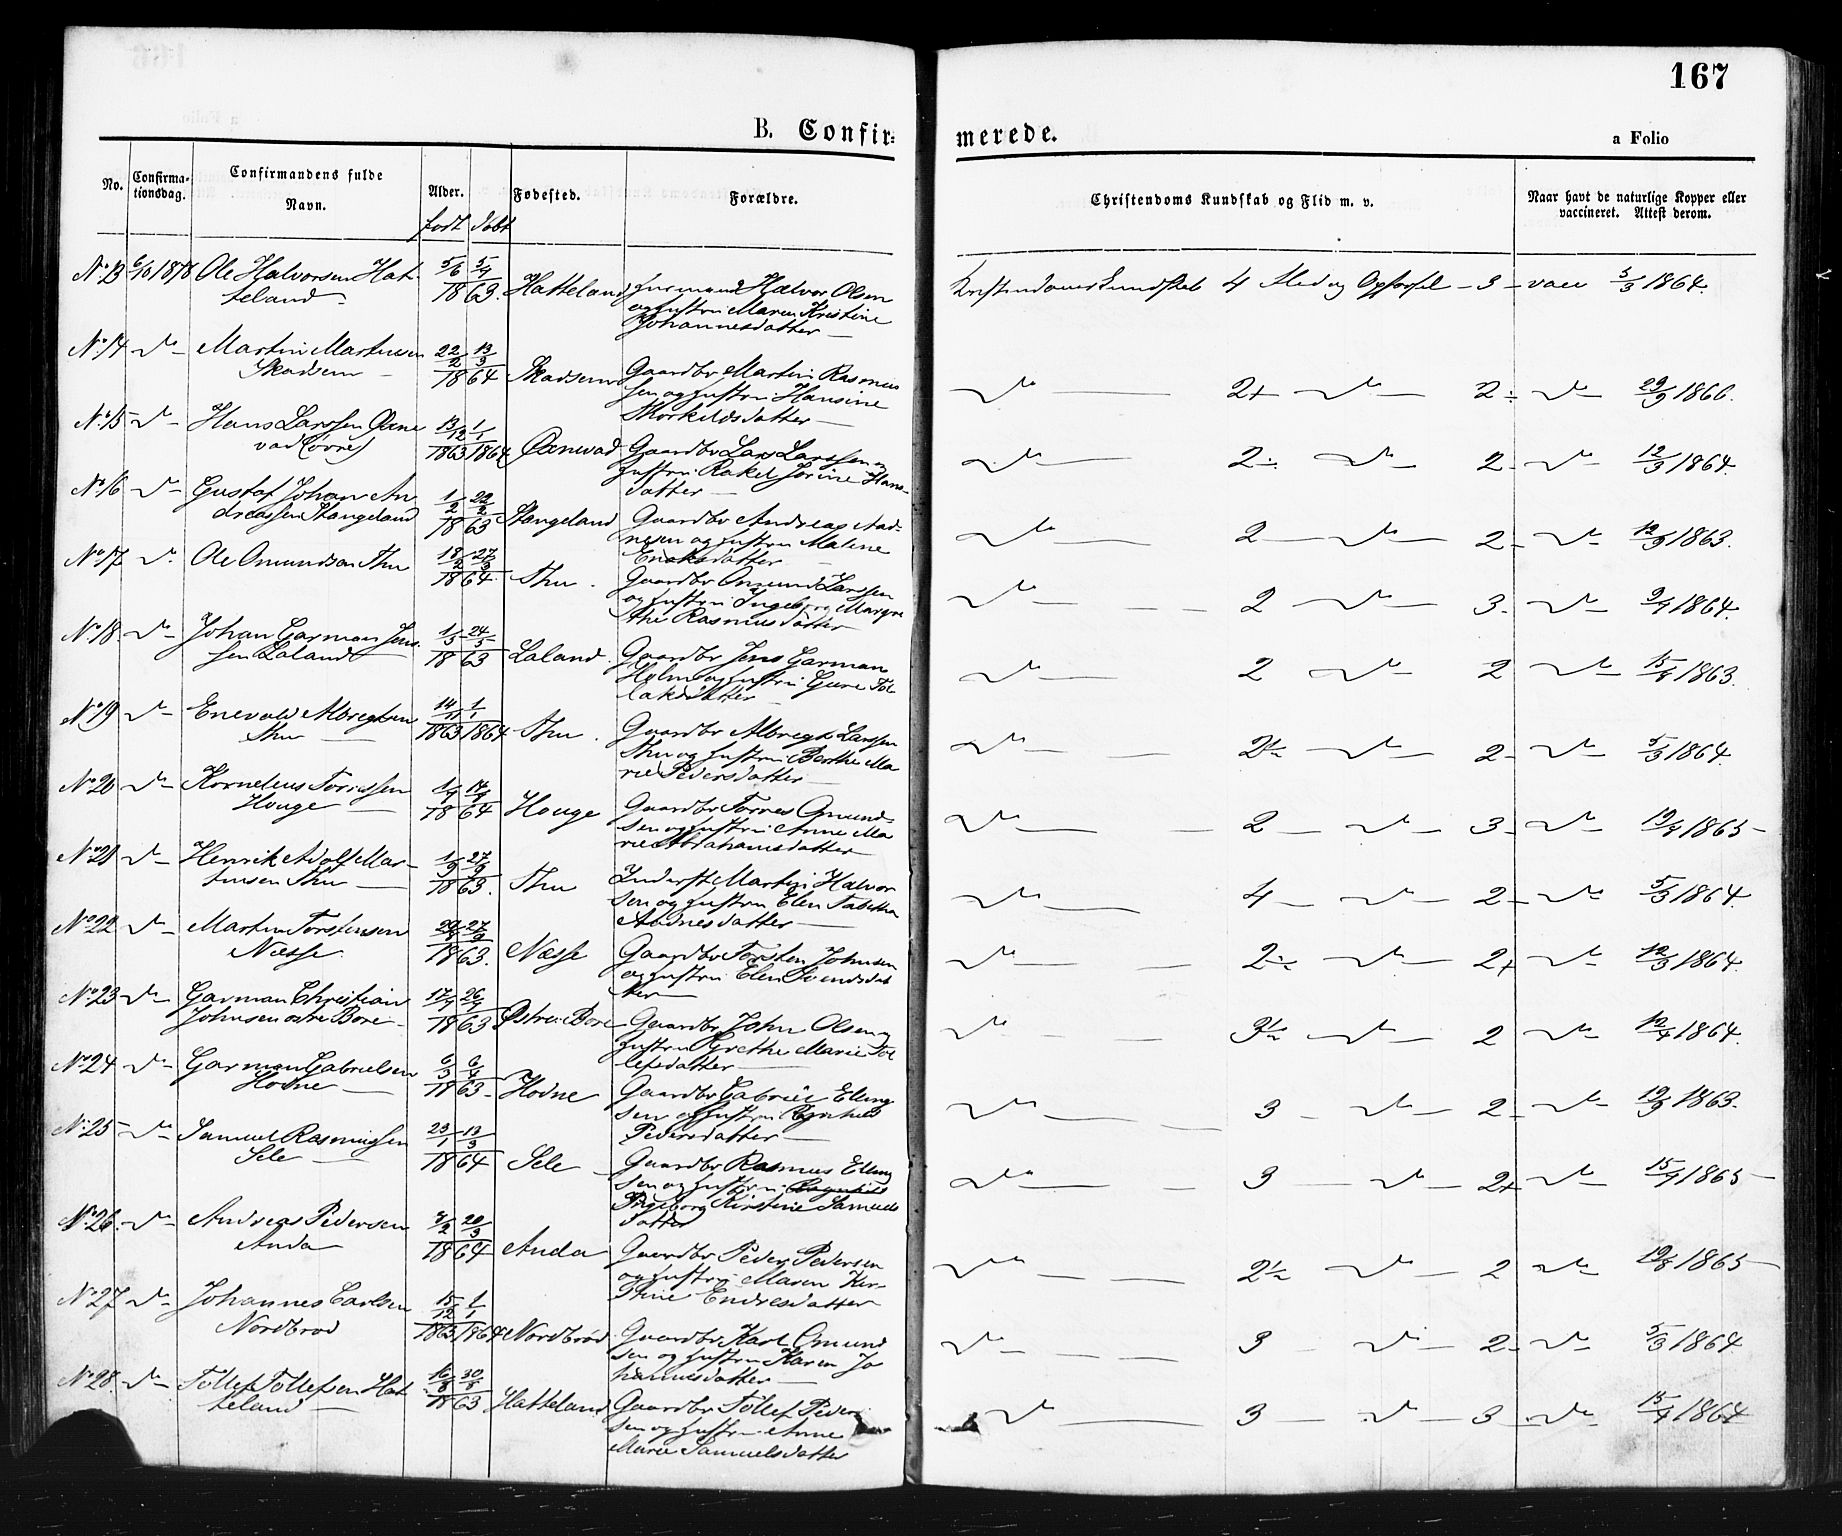 167
B. Confir=
merede.
a Folio
No.
Confirma-
tionsdag.
Confirmandens fulde
Navn.
Alder.
født
døbt
Fødested.
Forældre.
Christendoms Kundskab og Flid m. v.
Naar havt de naturlige Kopper eller
vaccineret. Attest derom.
No 13 6/10 1878 Ole Halvorsen Hat
teland
5/6 5/7
18 63. Hatteland
Halvor Olsen
og Hustru Maren Kristine
Johannesdatter
4 Flid og Opførsel - 3 - vacc 1864.
No 14 do Martin Martinsen
Skadsem
22/2 13/3
18 64 Skadsem
Gaardbr Martin Rasmus
sen og Hustru Hansine
Thorkildsdatter
do 2+ do 2÷ do 29/9 1866.
No 15 do Hans Larssen Øxne
vad (øvre)
13/12 1/1
1863 1864 Øxnevad
Gaardbr Lars Larssen og
Hustru Rakel Serine Hans-
datter
do 2÷ do 2 do 12/3 1864.
No 16 do Gustaf Johan An
dreassen Stangeland
1/2 22/2
18 63 Stangeland
Gaardbr Andreas Aad-
nesen og Hustru Malene
Enoksdatter
do 2 do 2 do 12/9 1863.
No 17 do Ole Omundsen Thu
18/2 27/3
18 64. Thu.
Gaardbr Omund Larssen
og Hustru Ingeborg Margre
the Rasmusdatter
do 2 do 3 do 9/7 1864.
No 18. do Johan Garman Jens
sen Laland
1/5 24/5
18 63 Laland.
Gaardbr Jens Garman
Holm og Hustru Gure Tol
laksdatter
do 2 do 2 do 1863.
No 19 do Enevald Albregtsen
Thu
14/11 1/1
1863 1864 Thu.
Gaardbr Albregt Larssen
Thu og Hustru Berthe Ma
rie Pedersdatter
do 2½ do 2 do 5/3 1864.
No 20 do Kornelius Torrissen
Houge
18 64 Houge
Gaardbr Torres Omund-
sen og Hustru Anne Ma
rie Abrahamsdatter
do 2 do 3 do 1865
No 21 do Henrik Adolf Mar-
tinsen Thu
1/9 27/9
18 63. Thu
Inderst Martin Halvor
sen og Hustru Elen Tabitha
Aadnesdatter
do 4 do 2 do 5/3 1864.
No 22 do Martin Torstensen
Næsse
27/9
18 63. Næsse
Gaardbr Torsten Johnsen
og Hustru Elen Svendsdat
ter
do 2÷ do 2+ do 12/3 1864.
No 23 do Garman Christian
Johnsen østre Bore
18 63 Østre Bore
Gaardbr John Olsen og
Hustru Grethe Marie Tol
lefsdatter
do 3½ do 2 do 1864.
No 24 do Garman Gabrielsen
Hodne
6/3 6/4
18 63 Hodne
Gaardbr Gabriel Eling
sen og Hustru
Pedersdatter
do 3 do 2 do 1863.
No 25 do Samuel Rasmussen
Sele
23/1 13/3
18 64 Sele
Gaardbr Rasmus Elling
sen og Hustru
Ingeborg Kirstine Samuels
datter
do 3 do 2+ do 1865
No 26. do Andreas Pedersen
Anda
20/3
18 64 Anda
Gaardbr Peder Pedersen
og Hustru Maren Kir-
stine Endresdatter
do 2½ do 2 do 1865
No 27 do Johannes Carlsen
Nordbrød
15/12 1/1
1863 1864 Nordbrød
Gaardbr Karl Omund
sen og Hustru Karen Jo
hannesdatter
do 3 do 2 do 5/3 1864
No 28. do Tollef Tollefsen Hat
teland
16/8 30/8
18 63 Hatteland
Gaardbr Tollef Peder
sen og Hustru Anne
Marie Samuelsdatter
do 3 do 3 do 15/4 1864